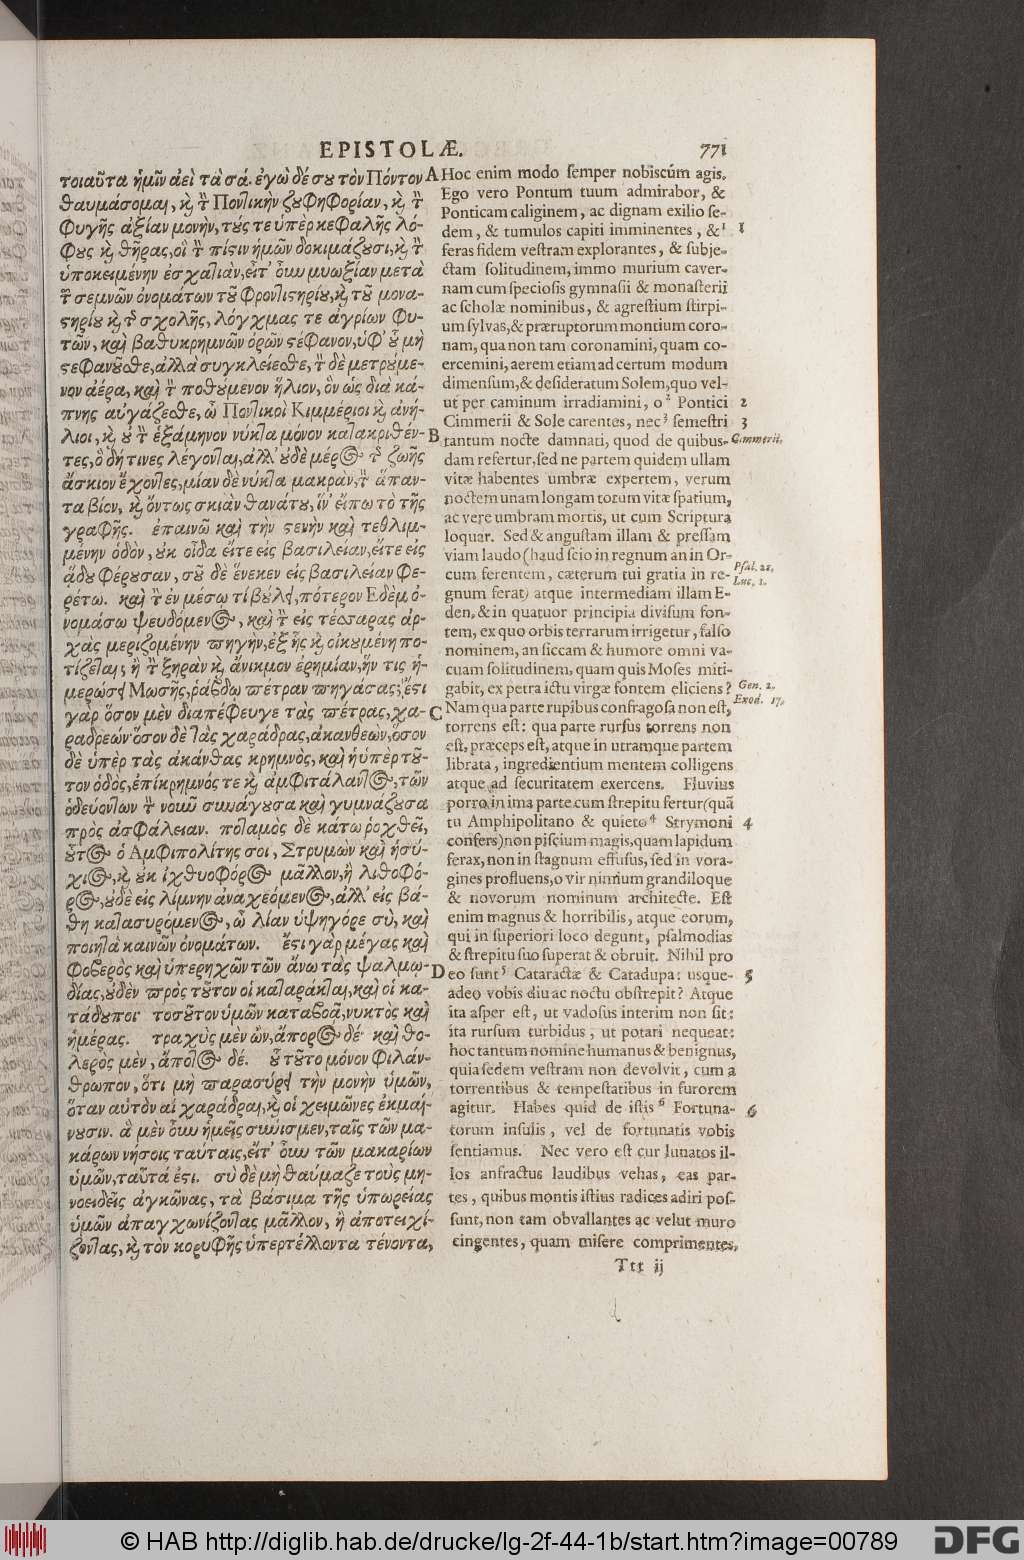 EPISTOLÆ.
771
τοιαῦτα ἡμῖν ἀεὶ τὰ σά. ἐγὼ δέ σου τὸν Πόντον
θαυμάσομαι, καὶ τὴν Ποντικὴν ζουφηφορίαν, καὶ τὴν
φυγῆς ἀξίαν μονὴν, τούς τε ὑπὲρ κεφαλῆς λό-
φους καὶ θῆρας, οἳ τὴν πίστιν ἡμῶν δοκιμάζουσι, καὶ τὴν
ὑποκειμένην ἐσχατιὰν, εἴτ' οὖν μυωξίαν μετὰ
τῶν σεμνῶν ὀνομάτων τοῦ φροντιστηρίου, καὶ τοῦ μονα-
στηρίου, καὶ τῆς σχολῆς, λόχμας τε ἀγρίων φυ-
τῶν, καὶ βαθυκρημνῶν ὀρῶν στέφανον, ὑφ' οὗ μὴ
στεφανοῦσθε, ἀλλὰ συγκλείεσθε, τὸν δὲ μετρούμε-
νον ἀέρα, καὶ τὸν ποθούμενον ἥλιον, ὃν ὡς διὰ κά-
πνης αὐγάζεσθε, ὦ Ποντικοὶ Κιμμέριοι καὶ ἀνή-
λιοι, καὶ οὐ τὴν ἑξάμηνον νύκτα μόνον κατακριθέν-
τες, ὃ δή τινες λέγονται, ἀλλ' οὐδὲ μέρος τῆς ζωῆς
ἄσκιον ἔχοντες, μίαν δὲ νύκτα μακρὰν, τὸν ἅπαν-
τα βίον, καὶ ὄντως σκιὰν θανάτου, ἵν' εἴπω τὸ τῆς
γραφῆς. ἐπαινῶ καὶ τὴν στενὴν καὶ τεθλιμ-
μένην ὁδὸν, οὐκ οἶδα εἴτε εἰς βασιλείαν, εἴτε εἰς
ᾅδου φέρουσαν, σοῦ δὲ ἕνεκεν εἰς βασιλείαν φε-
ρέτω. καὶ τὴν ἐν μέσῳ τί βούλει, πότερον Ἐδὲμ ὀ-
νομάσω ψευδόμενος, καὶ τὴν εἰς τέσσαρας ἀρ-
χὰς μεριζομένην πηγὴν, ἐξ ἧς καὶ οἰκουμένη πο-
τίζεται; ἢ τὴν ξηρὰν καὶ ἄνικμον ἐρημίαν, ἥν τις ἡ-
μερώσει Μωσῆς, ῥάβδῳ πέτραν πηγάσας; ἔστι
γὰρ ὅσον μὲν διαπέφευγε τὰς πέτρας, χα-
ραδρεών· ὅσον δὲ τὰς χαράδρας, ἀκανθεών, ὅσον
δὲ ὑπὲρ τὰς ἀκάνθας κρημνὸς, καὶ ἡ ὑπὲρ τού-
του ὁδὸς, ἐπίκρημνός τε καὶ ἀμφιτάλαντος, τῶν
ὁδευόντων τὸν νοῦν συνάγουσα καὶ γυμνάζουσα
πρὸς ἀσφάλειαν. ποταμὸς δὲ κάτω ῥοχθεῖ,
οὗτος ὁ Ἀμφιπολίτης σοι, Στρυμὼν καὶ ἡσύ-
χιος, καὶ οὐκ ἰχθυοφόρος μᾶλλον, ἢ λιθοφό-
ρος, οὐδὲ εἰς λίμνην ἀναχεόμενος, ἀλλ' εἰς βά-
θη κατασυρόμενος, ὦ λίαν ὑψηγόρε σὺ, καὶ
ποιητὰ καινῶν ὀνομάτων. ἔστι γὰρ μέγας καὶ
φοβερὸς καὶ ὑπερηχῶν τῶν ἄνω τὰς ψαλμῳ-
δίας, οὐδὲν πρὸς τοῦτον οἱ καταράκται, καὶ οἱ κα-
τάδουποι τοσοῦτον ὑμῶν καταβοᾷ, νυκτὸς καὶ
ἡμέρας. τραχὺς μὲν ὢν, ἄπορος δέ· καὶ θο-
λερὸς μὲν, ἄποτος δέ. οὗ τοῦτο μόνον φιλάν-
θρωπον, ὅτι μὴ παρασύρει τὴν μονὴν ὑμῶν,
ὅταν αὐτὸν αἱ χαράδραι, καὶ οἱ χειμῶνες ἐκμαί-
νουσιν. ἃ μὲν οὖν ἡμεῖς σύνισμεν, ταῖς τῶν μα-
κάρων νήσοις ταύταις, εἴτ' οὖν τῶν μακαρίων
ὑμῶν, ταῦτά ἐστι. σὺ δὲ μὴ θαύμαζε τοὺς μη-
νοειδεῖς ἀγκῶνας, τὰ βάσιμα τῆς ὑπωρείας
ὑμῶν ἀπαγχωνίζοντας μᾶλλον, ἢ ἀποτειχί-
ζοντας, καὶ τὸν κορυφῆς ὑπερτέλλοντα τένοντα,
A
B
C
D
Hoc enim modo semper nobiscum agis.
Ego vero Pontum tuum admirabor, &
Ponticam caliginem, ac dignam exilio se-
dem, & tumulos capiti imminentes, &¹
feras fidem vestram explorantes, & subje-
ctam solitudinem, immo murium caver-
nam cum speciosis gymnasii & monasterii
ac scholæ nominibus, & agrestium stirpi-
um sylvas, & præruptorum montium coro-
nam, qua non tam coronamini, quam co-
ercemini, aerem etiam ad certum modum
dimensum, & desideratum Solem, quo vel-
ut per caminum irradiamini, o² Pontici
Cimmerii & Sole carentes, nec³ semestri
tantum nocte damnati, quod de quibus-
dam refertur, sed ne partem quidem ullam
vitæ habentes umbræ expertem, verum
noctem unam longam totum vitæ spatium,
ac vere umbram mortis, ut cum Scriptura
loquar. Sed & angustam illam & pressam
viam laudo (haud scio in regnum an in Or-
cum ferentem, cæterum tui gratia in re-
gnum ferat) atque intermediam illam E-
den, & in quatuor principia divisum fon-
tem, ex quo orbis terrarum irrigetur, falso
nominem, an siccam & humore omni va-
cuam solitudinem, quam quis Moses miti-
gabit, ex petra ictu virgæ fontem eliciens?
Nam qua parte rupibus confragosa non est,
torrens est: qua parte rursus torrens non
est, præceps est, atque in utramque partem
librata, ingredientium mentem colligens
atque ad securitatem exercens. Fluvius
porro in ima parte cum strepitu fertur (quã
tu Amphipolitano & quieto⁴ Strymoni
confers) non piscium magis, quam lapidum
ferax, non in stagnum effusus, sed in vora-
gines profluens, o vir nimium grandiloque
& novorum nominum architecte. Est
enim magnus & horribilis, atque eorum,
qui in superiori loco degunt, psalmodias
& strepitu suo superat & obruit. Nihil pro
eo sunt⁵ Cataractæ & Catadupa: usque-
adeo vobis diu ac noctu obstrepit? Atque
ita asper est, ut vadosus interim non sit:
ita rursum turbidus, ut potari nequeat:
hoc tantum nomine humanus & benignus,
quia sedem vestram non devolvit, cum a
torrentibus & tempestatibus in furorem
agitur. Habes quid de istis⁶ Fortuna-
torum insulis, vel de fortunatis vobis
sentiamus. Nec vero est cur lunatos il-
los anfractus laudibus vehas, eas par-
tes, quibus montis istius radices adiri pos-
sunt, non tam obvallantes ac velut muro
cingentes, quam misere comprimentes,
1
2
3
Cimmerii,
Psal. 22,
Luc. 1.
Gen. 2,
Exod. 17,
4
5
6
Ttt ij
© HAB http://diglib.hab.de/drucke/lg-2f-44-1b/start.htm?image=00789
DFG